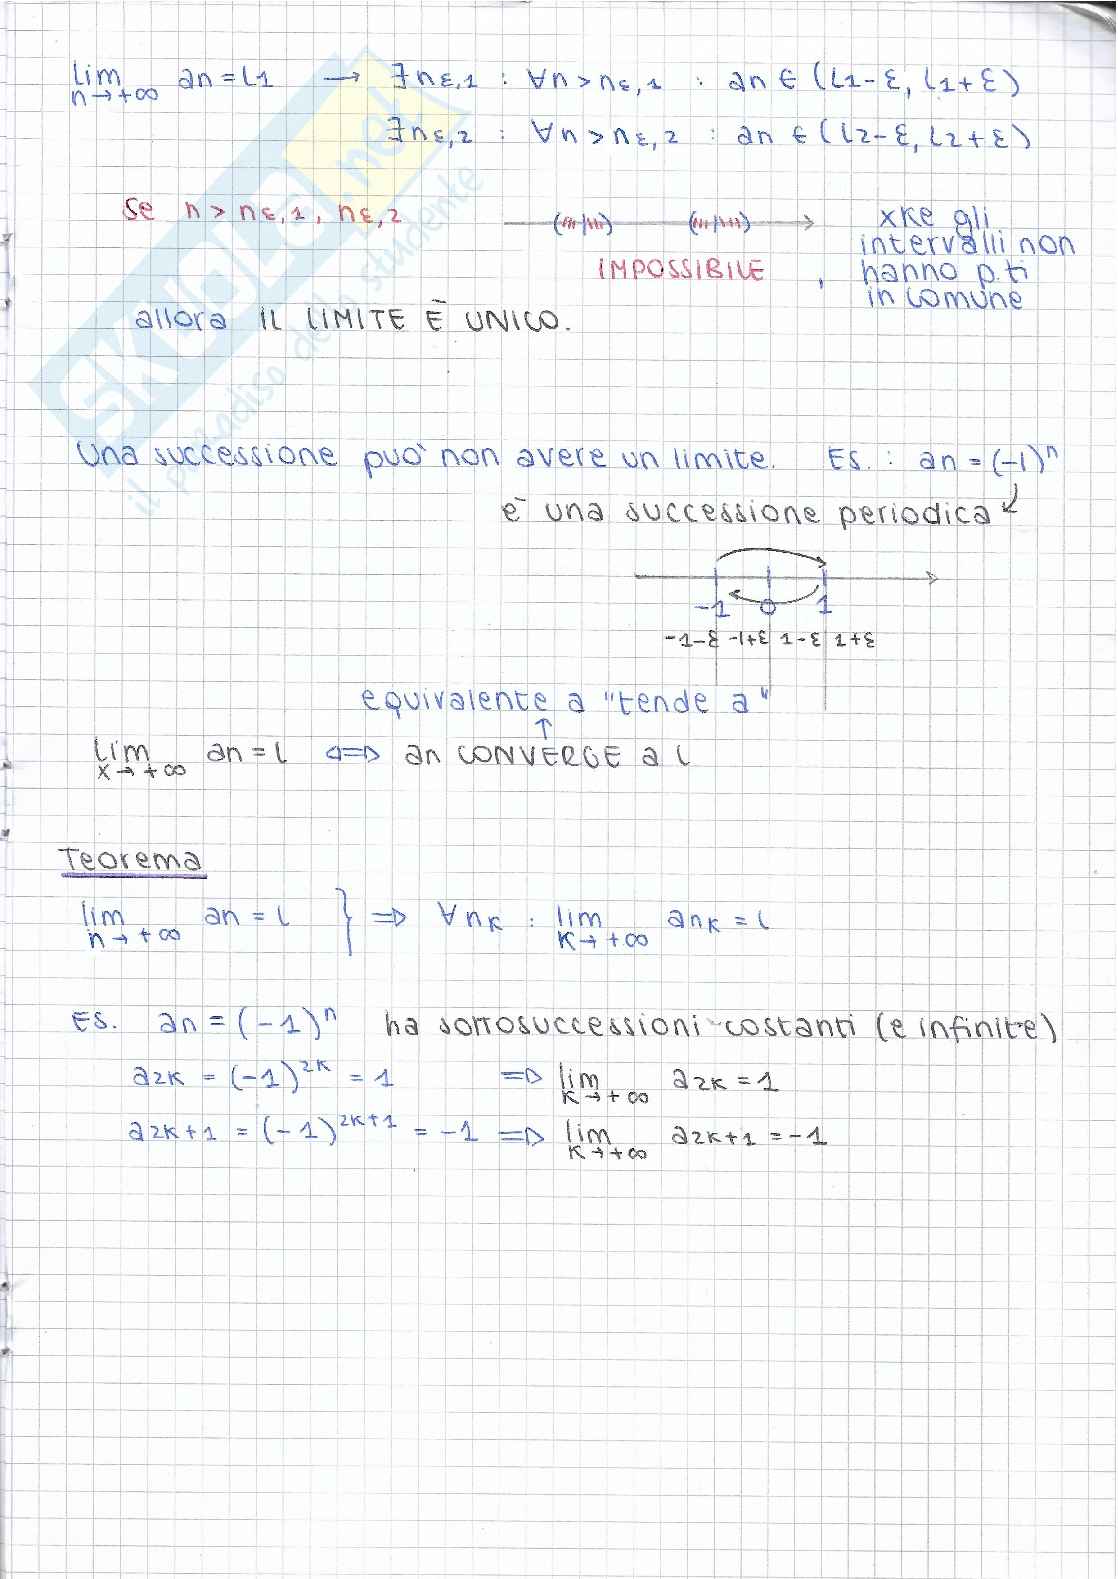 lim an = l1 → ∃ nε,1 : ∀n > nε,1 : an ∈ (l1-ε, l1+ε)
n→+∞
∃ nε,2 : ∀n > nε,2 : an ∈ (l2-ε, l2+ε)
Se n > nε,1, nε,2
xke gli
intervalli non
IMPOSSIBILE , hanno p.ti
in comune
allora IL LIMITE È UNICO.
Una successione può non avere un limite. ES. : an = (-1)^n
è una successione periodica
-1 0 1
-1-ε -1+ε 1-ε 1+ε
equivalente a "tende a"
↑
lim an = l ⇔ an CONVERGE a l
x→+∞
Teorema
lim an = l } ⇒ ∀nk : lim ank = l
n→+∞ k→+∞
ES. an = (-1)^n ha sottosuccessioni costanti (e infinite)
a2k = (-1)^2k = 1 ⇒ lim a2k = 1
k→+∞
a2k+1 = (-1)^2k+1 = -1 ⇒ lim a2k+1 = -1
k→+∞
SKUOLA.net
il paradiso dello studente